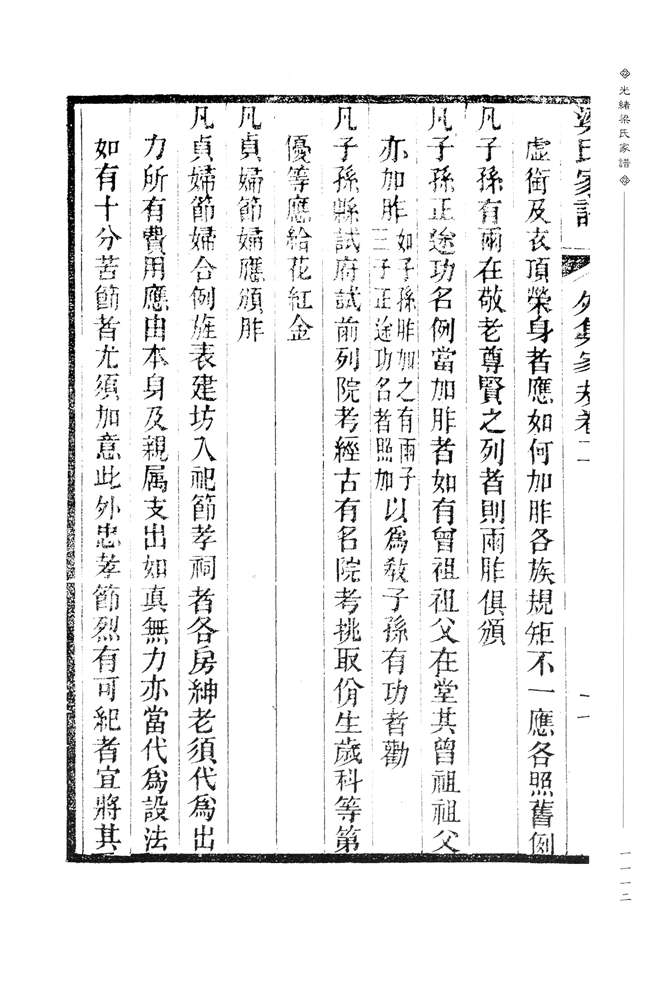 光緒梁氏家譜
一一一二
梁氏家譜 外集家規卷二
虛銜及衣頂榮身者應如何加胙各族規矩不一應各照舊例
凡子孫有兩在敬老尊賢之列者則兩胙俱頒
凡子孫正途功名例當加胙者如有曾祖祖父在堂其曾祖祖父
亦加胙如子孫胙加之有兩子三子正途功名者照加以爲教子孫有功者勸
凡子孫縣試府試前列院考經古有名院考挑取佾生歲科等第
優等應給花紅金
凡貞婦節婦應頒胙
凡貞婦節婦合例旌表建坊入祀節孝祠者各房紳老須代爲出
力所有費用應由本身及親属支出如真無力亦當代爲設法
如有十分苦節者尤須加意此外忠孝節烈有可紀者宜將其